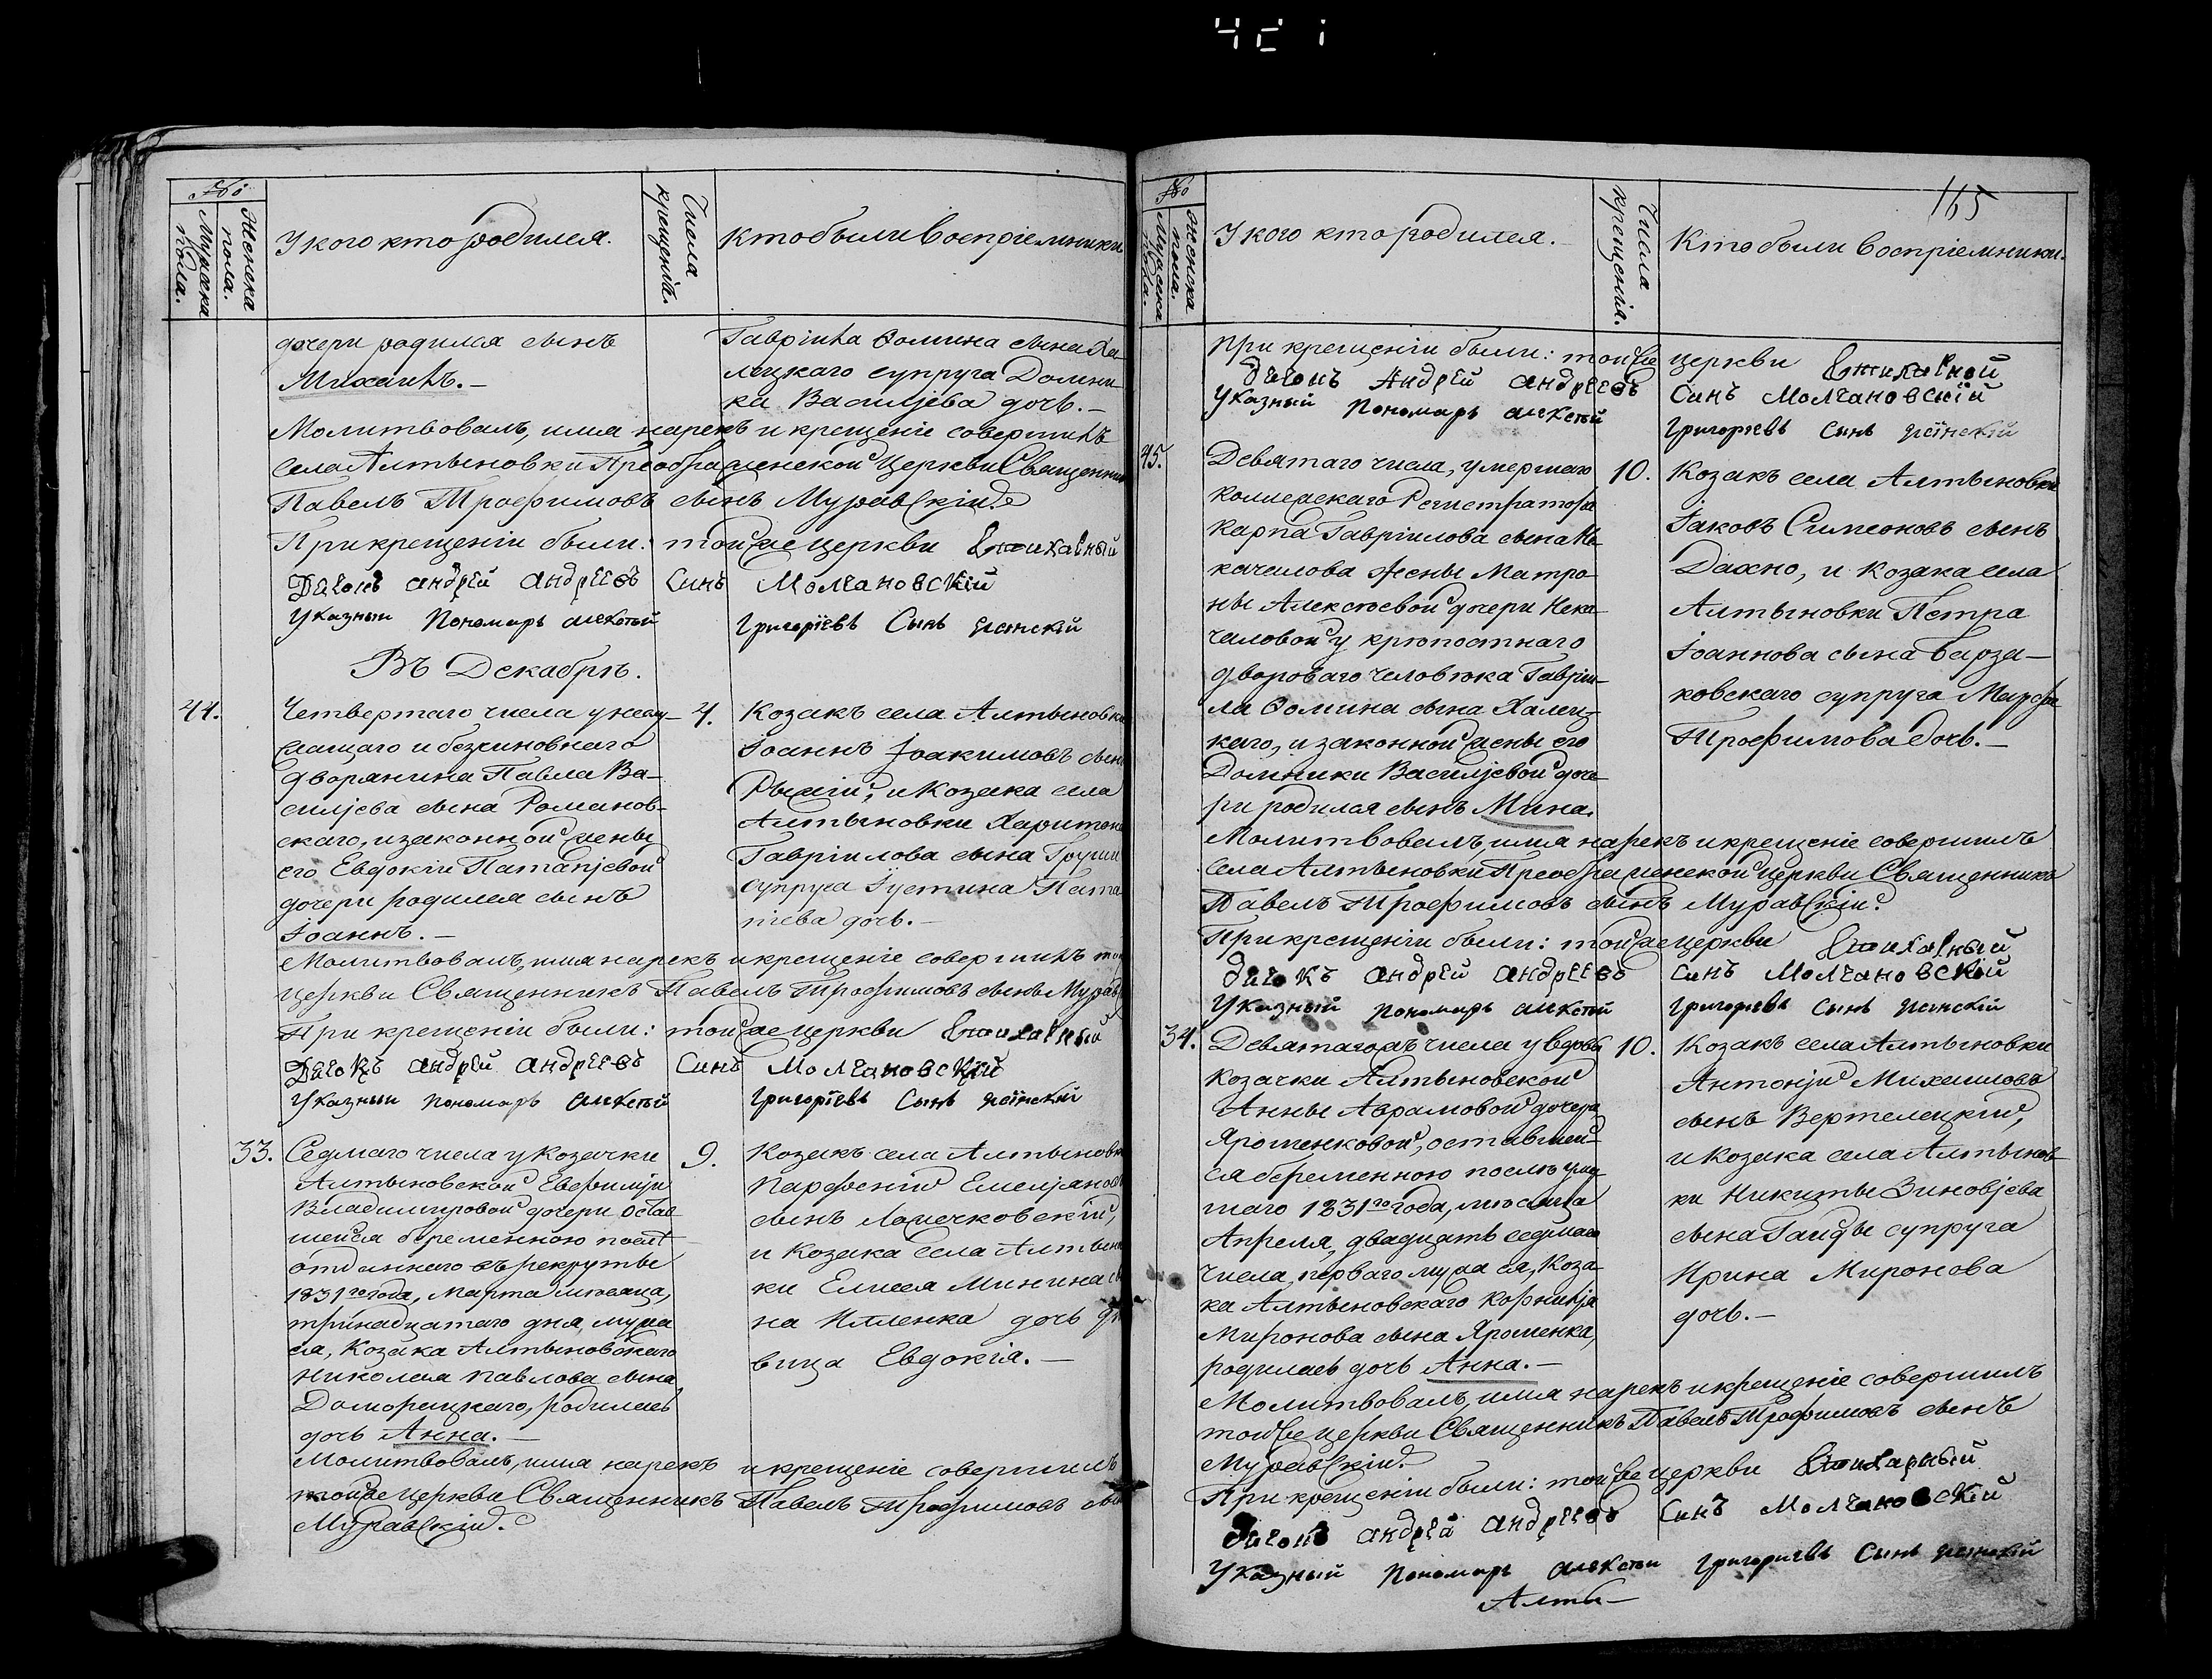 №
Мужеска пола.
Женска пола.
У кого кто родился.
Числа крещенія.
Кто были воспріемники
дочери родился сынъ
Михаилъ.—
Гавріила Ѳомина сына Ха-
лецкаго супруга Домни-
ка Василіева дочь.—
Молитвовалъ, имя нарекъ и крещеніе совершилъ
села Алтыновки Преображенской Церкви Священник
Павелъ Трофимовъ сынъ Муравскій.
При крещеніи были: той же церкви Стихарный
Дячокъ Андрей Андреевъ Синъ Молчановскій
Указный Пономарь Алексѣй Григоріевъ Сынъ
Въ Декабрѣ.
44.
Четвертаго числа у неслу-
жащаго и безчиновнаго
дворянина Павла Ва-
силіева сына Романов-
скаго, и законной жены
его Евдокіи Патапіевой
дочери родился сынъ
Іоаннъ.—
4.
Козакъ села Алтыновки
Іоаннъ Іоакимовъ сынъ
Рыжій, и Козака села
Алтыновки Харитона
Гавріилова сына
супруга Іустина Пата
піева дочь.—
Молитвовалъ, имя нарекъ и крещеніе совершилъ той
церкви Священникъ Павелъ Трофимовъ сынъ Мурав
При крещеніи были: той же церкви Стихарный
Дячокъ Андрей Андреевъ Синъ Молчановскій
Указный пономарь Алексѣй Григоріевъ Сынъ
33.
Седмаго числа у козачки
Алтыновской Евфиміи
Владимировой дочери остав
шейся беременною послѣ
отданнаго въ рекруты
1831го года, Марта мѣсяца,
тринадцатаго дня, мужа
ея, Козака Алтыновскаго
Николая Павлова сына
Доморецкаго, родилась
дочь Анна.—
9.
Козакъ села Алтыновки
Парфеній Емеліяновъ
сынъ Ломечковскій,
и Козака села Алтынов
ки Елисея Минина сы
на Иллснка дочь дѣ
вица Евдокія.—
Молитвовалъ, имя нарекъ и крещеніе совершилъ
той же церкви Священникъ Павелъ Трофимовъ сынъ
Муравскій.
165
№
Мужеска пола.
Женска пола.
У кого кто родился.—
Числа крещенія.
Кто были воспріемники.
При крещеніи были: той же церкви Стихарной
дячокъ Андрей Андреевъ Синъ Молчановскій
Указный Пономарь Алексѣй Григоріевъ Сынъ
45.
Девятаго числа, умершаго
коллежскаго Регистратора
Карпа Гавріилова сына Не-
качалова жены Матро-
ны Алексѣевой дочери Нека-
чаловой у крѣпостнаго
двороваго человѣка Гаврiи-
ла Ѳомина сына Халец-
каго, и законной жены его
Домники Василіевой доче-
ри родился сынъ Мина.
10.
Козакъ села Алтыновки
Іаковъ Симеоновъ сынъ
Дахно, и Козака села
Алтыновки Петра
Іоаннова сына Барза-
ковскаго супруга Марфа
Трофимова дочь.—
Молитвовалъ, имя нарекъ и крещеніе совершилъ
села Алтыновки Преображенской Церкви Священникъ
Павелъ Трофимовъ сынъ Муравскій.
При крещеніи были: той же церкви Стихарный
дячокъ Андрей Андреевъ синъ Молчановскій
Указный пономарь Алексѣй Григоріевъ Сынъ
34.
Девятагожъ числа у вдовы
козачки Алтыновской
Анны Аврамовой дочери
Ярошенковой, оставшей-
ся беременною послѣ умер
шаго 1831го года, мѣсяца
Апреля, двадцать седмаго
числа перваго мужа ея, Коза-
ка Алтыновскаго Корнилія
Миронова сына Ярошенка,
родилась дочь Анна.—
10.
Козакъ села Алтыновки
Антоній Михаиловъ
сынъ Вертелецкій,
и Козака села Алтынов-
ки Никиты Зиновіева
сына Гайды супруга
Ирина Миронова
дочь.—
Молитвовалъ, имя нарекъ и крещеніе совершилъ
той же церкви Священникъ Павелъ Трофимовъ сынъ
Муравскій.
При крещеніи были: той же церкви Стихарный
Дячокъ Андрей Андреевъ Синъ Молчановскій
Указный Пономарь Алексѣй Григоріевъ Сынъ
Алты—